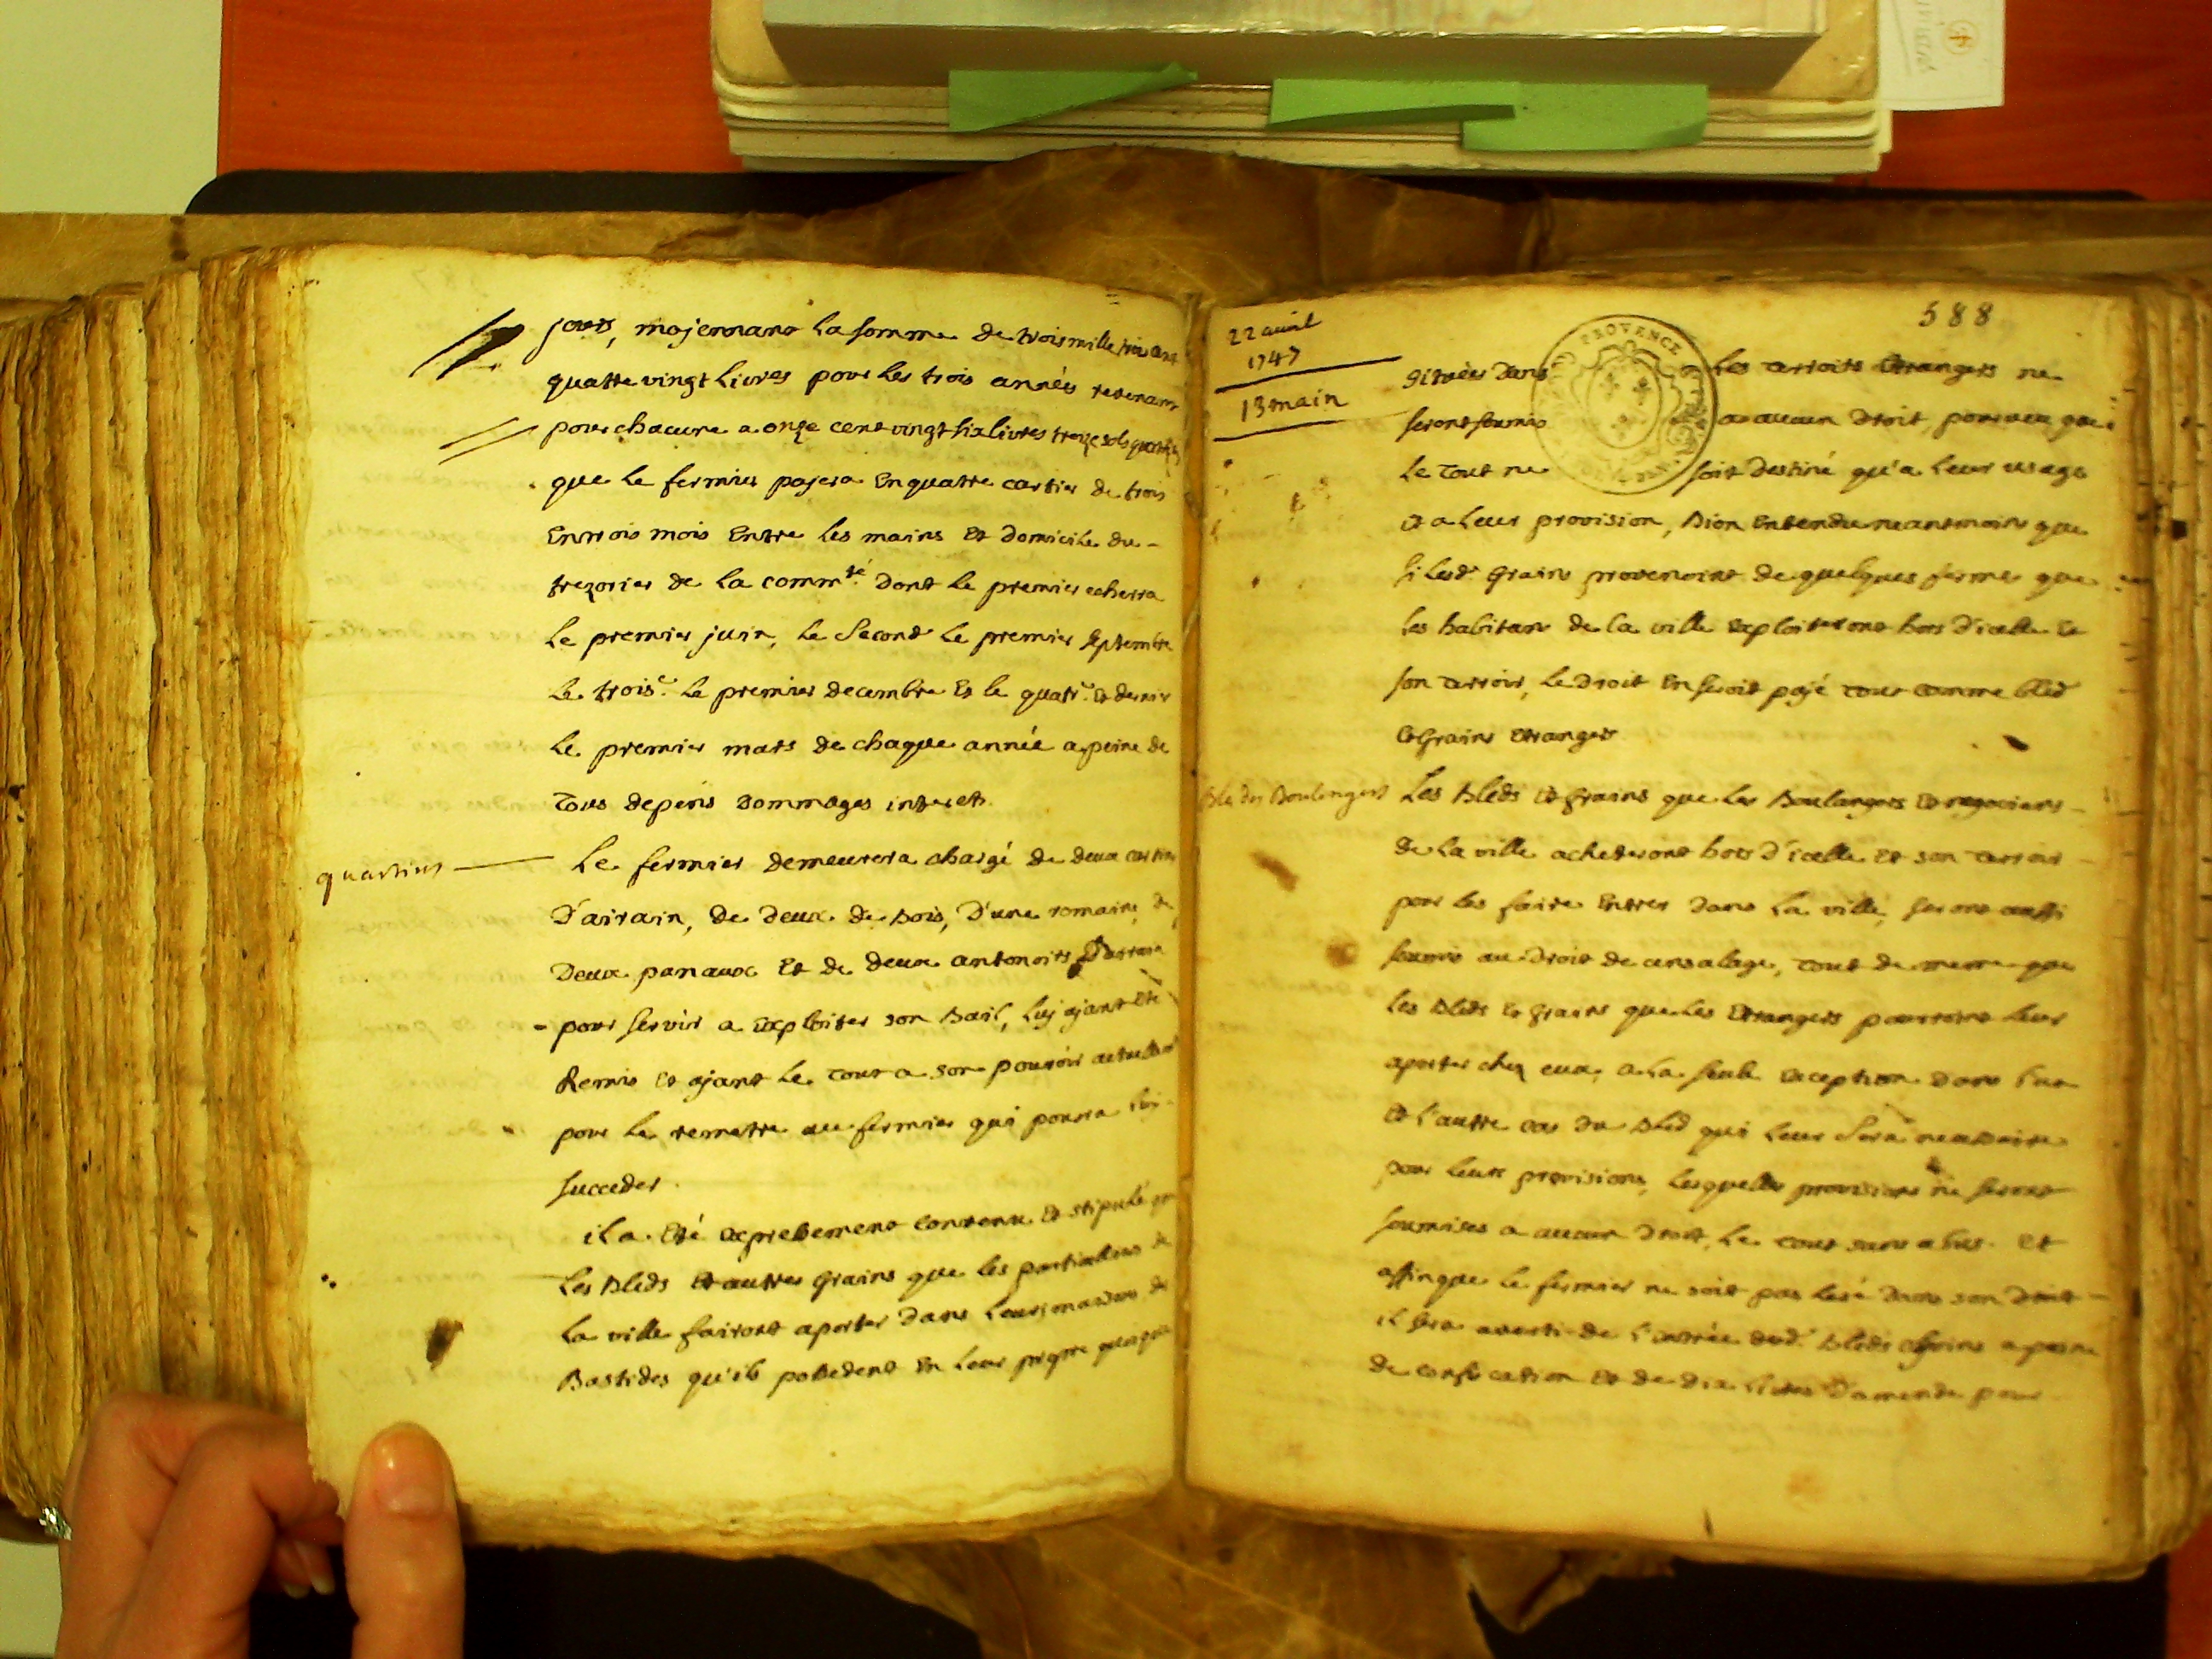 jours, mojennant la somme de trois mille trois cent
quattre vingt livres pour les trois années revenant
pour chacune a onze cent vingt six livres treize sols quatre
que le fermier pajera en quattre cartier de trois
en trois mois entre les mains et domicile du
trezorier de la comm.té dont le premier echerra
le premier juin, le second le premier septembre
le trois.e le premier decembre et le quatr.e et dernier
le premier mars de chaque année a peine de
tous depens dommages interets.
quartiers
le fermier demeurera chargé de deux
D'airain, de deux de bois, D'une romaine, de
Deux panaux et de deux antonoirs
pour servir a exploiter son bail, luy ajant eté
Remis et ajant le tout a son pouvoir
pour le remettre au fermier qui pourra lui
succeder.
il a eté expressement convenu et stipulé que
les bleds et autres grains que les particuliers de
la ville fairont aporter dans leurs maisons de
Bastides qu'ils possedent en leur propre quoique
588
22 avril
1747
13 main
PROVENCE
situées dans les terroirs etrangers ne
seront soumis a aucun droit, pourveu que
le tout ne soit destiné qu'a leur usage
et a leur provision, bien entendu neantmoins que
si lesd. grains provenoint de quelques fermes que
les habitans de la ville exploiteront hors d'icelle et
son terroir, le droit en seroit pajé tout comme bled
et grains etrangers
Ble des Boulengers
Les bleds et grains que les Boulangers et negocians
de la ville acheteront hors d'icelle et son terroir
pour les faire entrer dans la ville, seront aussi
soumis au droit de censalage, tout de meme que
les bleds et grains que les etrangers pourroint leur
aporter chez eux, a la seule exception dans l'un
et l'autre cas du bled qui leur sera necessaire
pour leurs provisions, lesquelles provisions ne seront
soumises a aucun droit, le tout sans abus. et
affin que le fermier ne soit pas lesé dans son droit
il sera averti de l'entrée desd. bleds et grains a peine
de confiscation et de dix livres d'amende pour